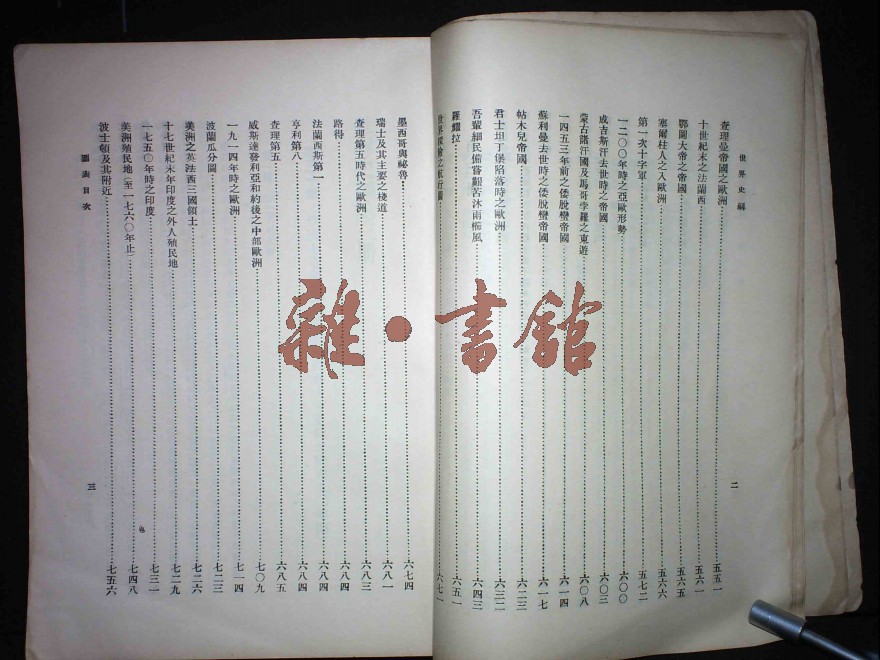 世界史綱
查理曼帝國之歐洲……五五一
十世紀末之法蘭西……五六一
鄂圖大帝之帝國……五六五
塞爾柱人之入歐洲……五六六
第一次十字軍……五七二
一二〇〇年時之亞歐形勢……六〇〇
成吉斯汗去世時之帝國……六〇三
蒙古諸汗國及馬哥孛羅之東遊……六〇八
一四五三年前之倭脫蠻帝國……六一四
蘇利曼去世時之倭脫蠻帝國……六一七
帖木兒帝國……六二三
君士坦丁堡陷落時之歐洲……六三二
吾輩細民備嘗艱苦沐雨櫛風……六四三
羅耀拉……六五一
世界探險之航行圖……六七一
二
墨西哥與祕魯……六七四
瑞士及其主要之棧道……六八一
查理第五時代之歐洲……六八三
路得……六八四
法蘭西斯第一……六八四
亨利第八……六八四
查理第五……六八五
威斯達發利亞和約後之中部歐洲……七〇九
一九一四年時之歐洲……七一四
波蘭瓜分圖……七二三
美洲之英法西三國領土……七二六
十七世紀末年印度之外人殖民地……七二九
一七五〇年時之印度……七三二
美洲殖民地(至一七六〇年止)……七四八
波士頓及其附近……七五六
圖表目次
三
雜·書館